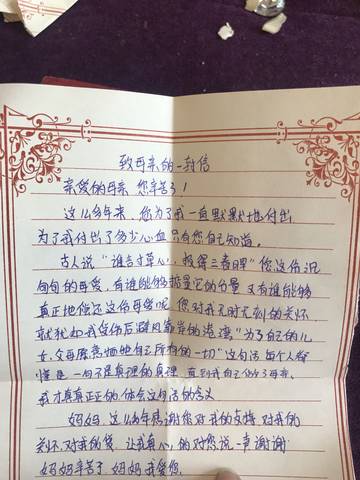 致母亲的一封信
亲爱的母亲,您辛苦了!
这么多年来,您为了我一直默默地付出
为了我付出了多少心血只有您自己知道。
古人说“谁言寸草心,报得三春晖”您这份沉
甸甸的母爱,有谁能够掂量它的分量又有谁能够
真正地偿还这份母爱呢,您对我无时无刻的关怀
就犹如我身后避风靠岸的港湾“为了自己的儿
女,父母愿意牺牲自己所有的一切”这句话每个人都
懂是一句不是真理的真理,直到我自己做了母亲,
我才真真正正的体会这句话的含义
妈妈,这么多年感谢您对我的支持,对我的
关怀,对我的爱,让我真心的对您说一声谢谢
妈妈辛苦了 妈妈我爱您